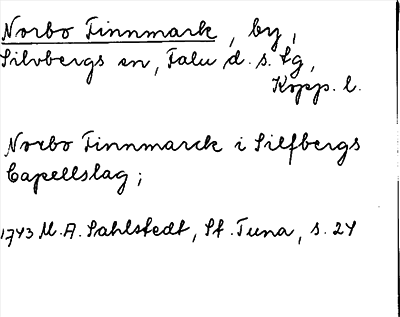 Norbo Finnmark, by,
Silvbergs sn, Falu d. s. lg,
Kopp. l.
Norbo Finnmarck i Silfbergs
Capellslag;
1743 M. A. Sahlstedt, St. Tuna, s. 24